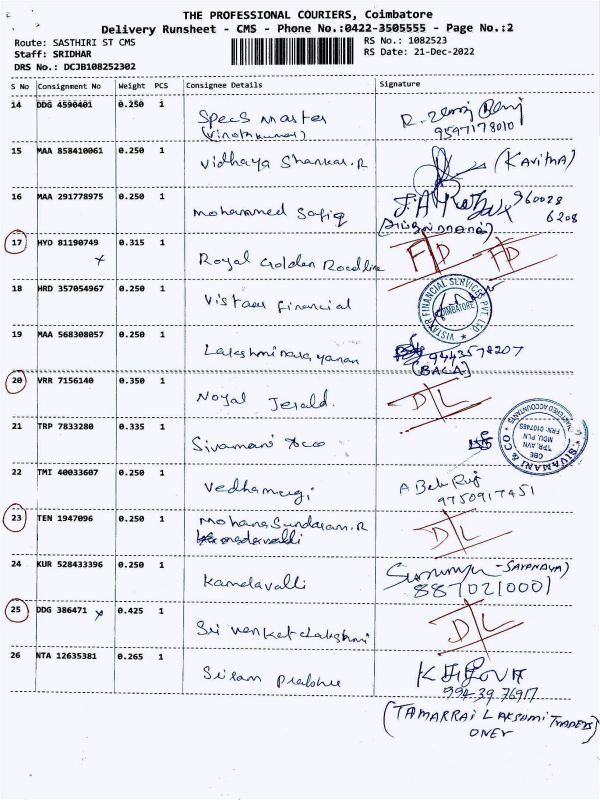 THE PROFESSIONAL COURIERS, Coimbatore
Delivery Runsheet - CMS - Phone No.:0422-3505555 - Page No.:2
Route: SASTHIRI ST CMS RS No.: 1082523
Staff: SRIDHAR RS Date: 21-Dec-2022
DRS No.: DCJB108252302
S No Consignment No Weight PCS Consignee Details Signature
14 DDG 4590401 0.250 1 Specs Master
(Vinothkumar) 9597178010
15 MAA 858410061 0.250 1 Vidhaya Shankar.R (KAVITHA)
16 MAA 291778975 0.250 1 Mohammed Safiq 960028
6208
17 HYD 81190749 0.315 1 Royal Golden Roadline F/D F/D
x
18 HRD 357054967 0.250 1 Vistaar Financial
VISTAAR FINANCIAL SERVICES PVT. LTD. COIMBATORE
19 MAA 568308057 0.250 1 Lakshminarayanan 9443578207
(BALA)
20 VRR 7156140 0.350 1 Noyal Jerald. D/L
21 TRP 7833280 0.335 1 Sivamani & co
SIVAMANI & CO CHARTERED ACCOUNTANTS
CBE
TPR, AVN
MDU, PLN
FRN: 01074S
22 TMI 40033607 0.250 1 Vedhamurgi
9750917451
23 TEN 1947096 0.250 1 Mohana Sundaram.R D/L
24 KUR 528433396 0.250 1 Kamalavalli
8870210001
25 DDG 386471 x 0.425 1 Sri venketalakshmi D/L
26 NTA 12635381 0.265 1 Sriram Prabhu
994 39 76917
(TAMARRAI LAKSUMI TRADERS)
ONER